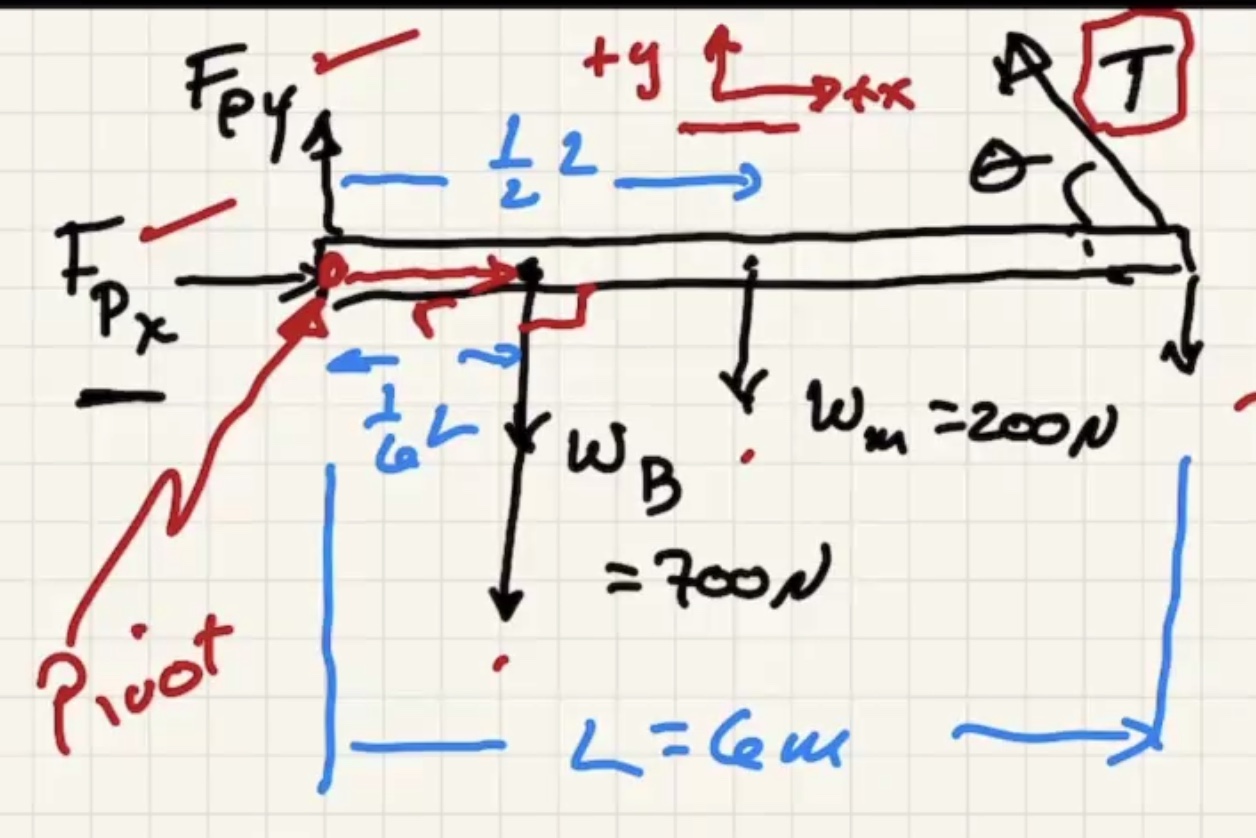 F_py
+y
+x
T
1/2 L
θ
F_px
r
1/6 L
W_B
= 700N
W_m = 200N
Pivot
L = 6m